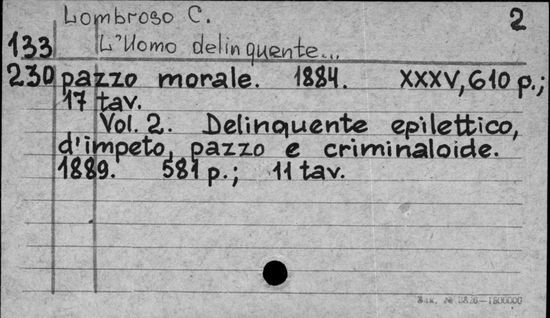 Lombroso C. 2
133 L'Uomo delinquente...
230 pazzo morale. 1884. XXXV, 610 p.;
17 tav.
Vol. 2. Delinquente epilettico,
d'impeto, pazzo e criminaloide.
1889. 581 p.; 11 tav.
Зак. № 5826—1800000